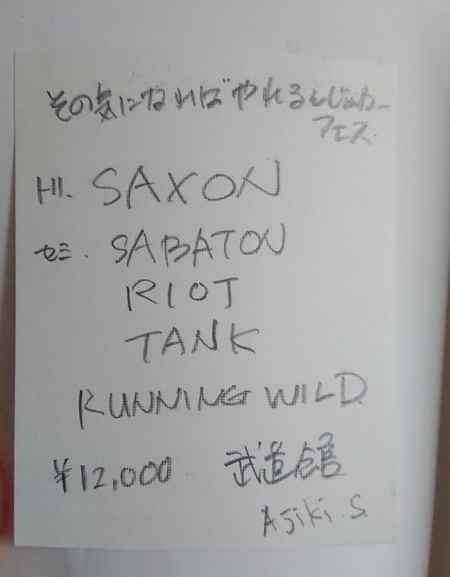 その気になればやれるんじゃねー
フェス
トリ. SAXON
セミ. SABATON
RIOT
TANK
RUNNING WILD
¥12,000 武道館
Ajiki.S